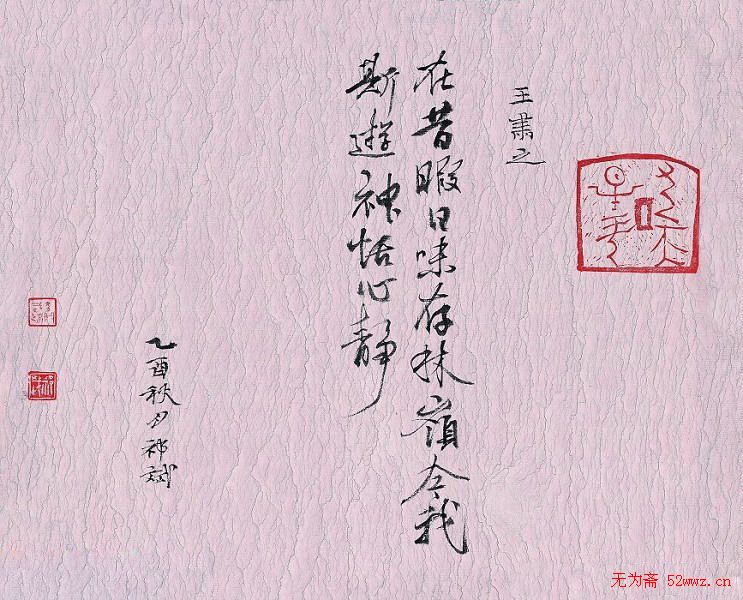 王肃之
在昔暇日味存林嶺今我
斯遊神怡心静
乙酉秋夕祁斌
无为斋 52wwz.cn